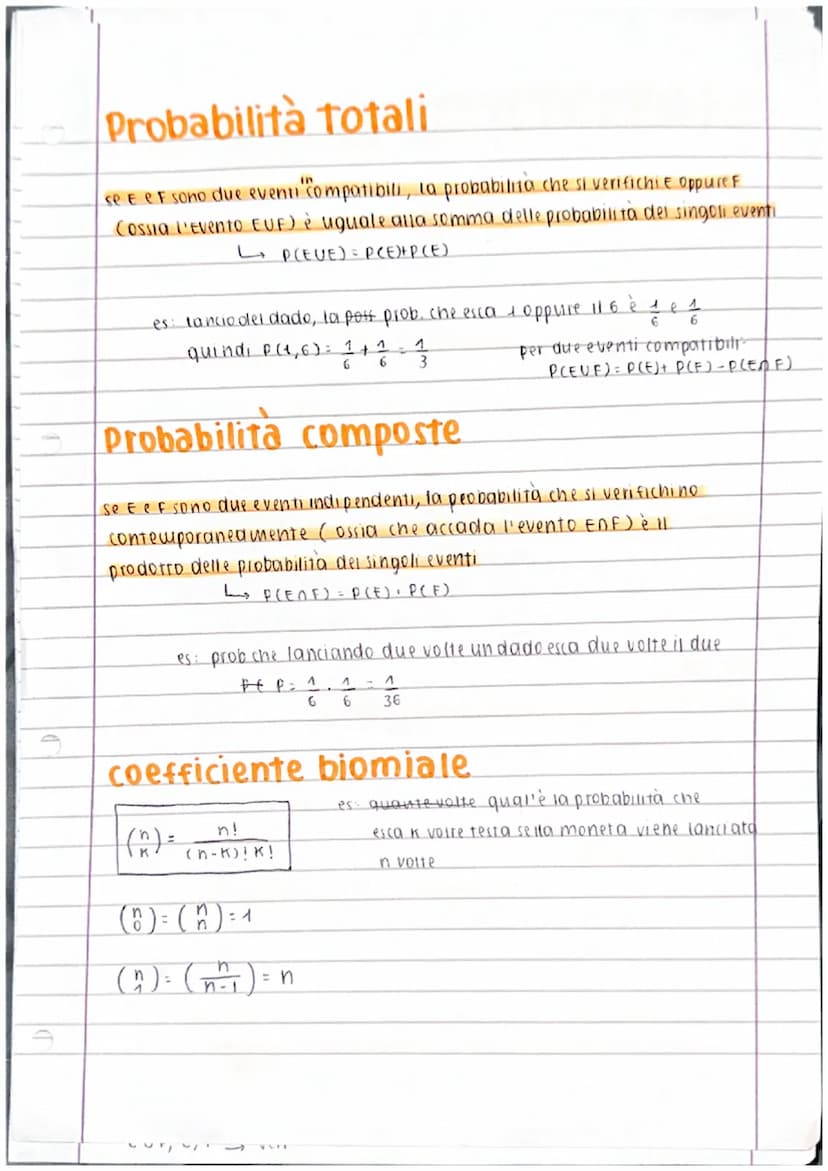 Probabilità totali
se E e F sono due eventi incompatibili, la probabilità che si verifichi E oppure F
(ossia l'evento EUF) è uguale alla somma delle probabilità dei singoli eventi
↳ P(EUE) = P(E)+P(E)
es: lancio del dado, la poss prob. che esca 1 oppure il 6 è 1/6 e 1/6
quindi P(1,6) = 1/6 + 1/6 = 1/3
per due eventi compatibili:
P(EUF) = P(E) + P(F) - P(E∩F)
Probabilità composte
se E e F sono due eventi indipendenti, la peobabilità che si verifichino
contemporaneamente (ossia che accada l'evento E∩F) è il
prodotto delle probabilità dei singoli eventi
↳ P(E∩F) = P(E) · P(F)
es: prob che lanciando due volte un dado esca due volte il due
P = 1/6 · 1/6 = 1/36
coefficiente biomiale
(n K) = n! / (n-K)! K!
es: quante volte qual'è la probabilità che
esca K volte testa se lla moneta viene lanciata
n volte
(n 0) = (n n) = 1
(n 1) = (n/n-1) = n